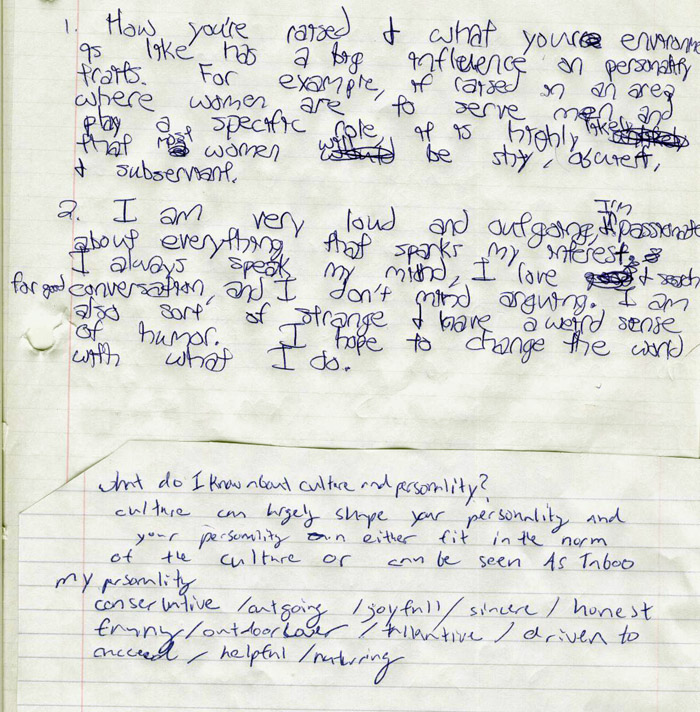 1. How you're raised & what your environme
is like has a big influence on personality
traits. For example, if raised in an area
where women are to serve men and
play a specific role, it is highly likely
that most women will be shy, obscure,
& subservant.
2. I am very loud and outgoing, I'm passionate
about everything that sparks my interest.
I always speak my mind, I love & search
for good conversation, and I don't mind arguing. I am
also sort of strange & have a weird sense
of humor. I hope to change the world
with what I do.
what do I know about culture and personality?
culture can largely shape your personality and
your personality can either fit in the norm
of the culture or can be seen As Taboo
my personality
conservative / outgoing / joyfull / sincere / honest
funny / outdoor lover / / driven to
succeed / helpful / nurturing